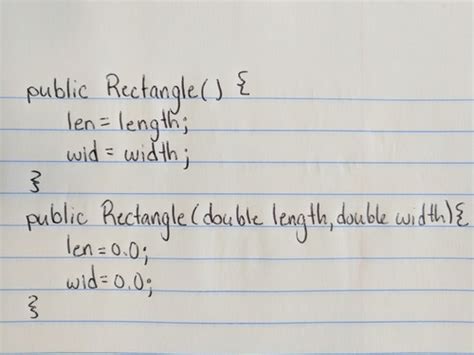 public Rectangle() {
len = length;
wid = width;
}
public Rectangle(double length, double width){
len = 0.0;
wid = 0.0;
}